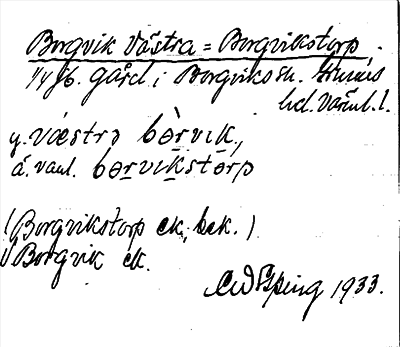 Borgvik Västra = Borgvikstorp,
1/4 fb. gård i Borgviks sn. Grums
hd. Värml. l.
y. væstrə bòrvik,
ä. vanl. borvikstorp
(Borgvikstorp ek. bek.)
Borgvik ek.
1933.